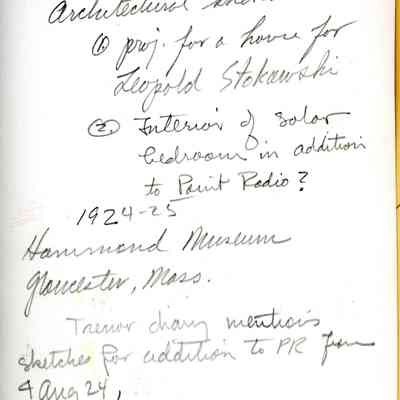 Architectural
① proj. for a house for
Leopold Stokawski
② Interior of solar
bedroom in addition
to Point Radio?
1924-25
Hammond Museum
Gloucester, Mass.
Trenor diary mentions
sketches for addition to PR from
4 Aug 24,